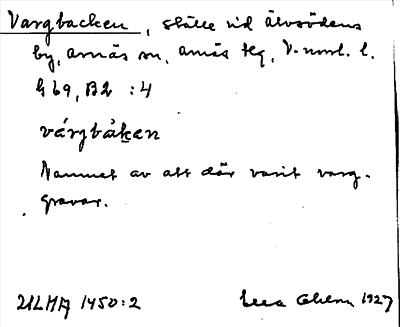 Vargbacken, ställe vid Älvsödens
by, Arnäs sn, Arnäs tlg, V-norrl. l.
G 69, B2 :4
várgbàken
Namnet av att där varit varg-
gravar.
ULMA 1450:2 1927